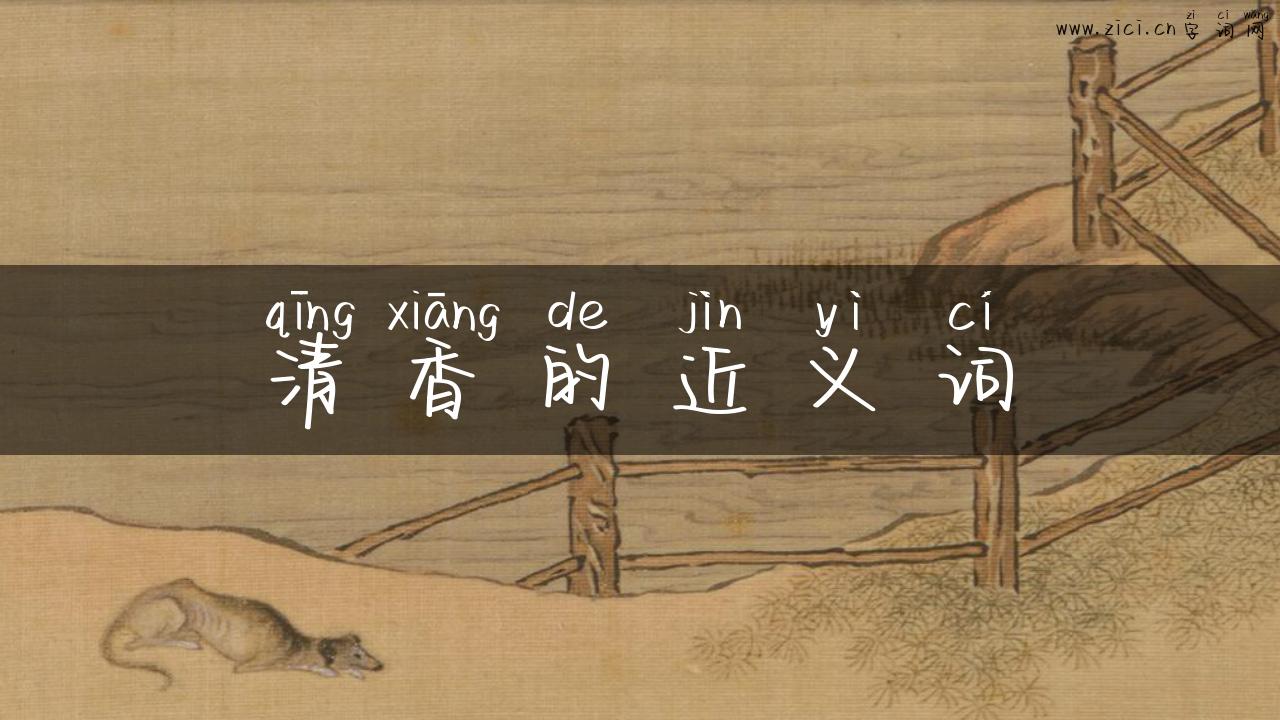 zì cí wǎng
www.zici.cn字词网
qīng xiāng de jìn yì cí
清香的近义词